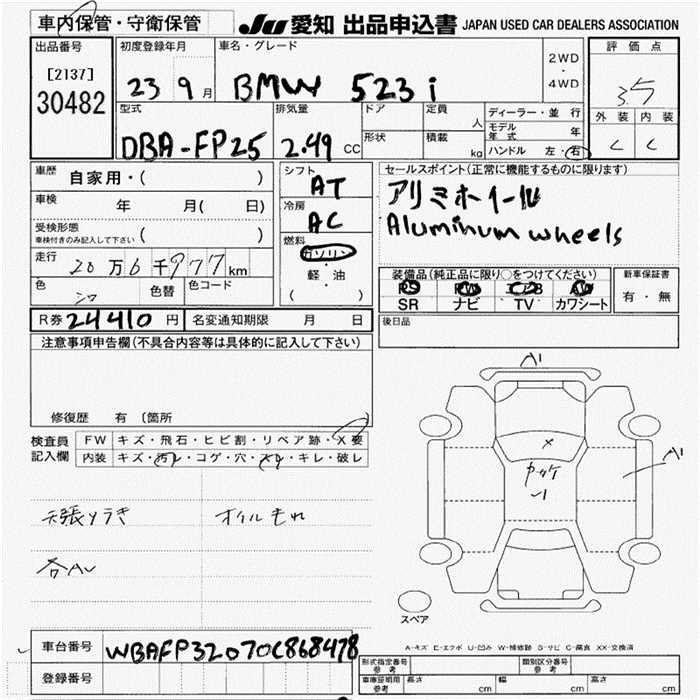 車内保管・守衛保管
JU 愛知 出品申込書 JAPAN USED CAR DEALERS ASSOCIATION
出品番号
[2137]
30482
初度登録年月
23 9月
車名・グレード
BMW 523i
2WD
・
4WD
評価点
3.5
外装 内装
C C
型式
DBA-FP25
排気量
2.49 CC
ドア
形状
定員
人
積載
kg
ディーラー・並行
モデル年式 年
ハンドル 左・右
車歴 自家用・( )
車検 年 月( 日)
受検形態
車検付きのみ記入して下さい ( )
走行 20万6千977km
色 シロ 色替 色コード
シフト
AT
冷房
AC
燃料
ガソリン
軽・油
( )
セールスポイント(正常に機能するものに限ります)
アリミホイール
Aluminum wheels
装備品(純正品に限り○をつけてください)
PS PW エアB AW
SR ナビ TV カワシート
新車保証書
有・無
R券 24410 円 名変通知期限 月 日
後日品
注意事項申告欄(不具合内容等は具体的に記入して下さい)
修復歴 有 〔箇所
検査員
記入欄
FW キズ・飛石・ヒビ割・リペア跡・X要
内装 キズ・汚レ・コゲ・穴・スレ・キレ・破レ
天張りうき オイルもれ
各AU
A1
A1
X
スペア
A-キズ E-エクボ U-凹み W-補修跡 S-サビ C-腐食 XX-交換済
車台番号 WBAFP32070C868478
登録番号
形式指定番号
参考
類別区分番号
参考
車庫証明用
参考
長さ cm 幅 cm 高さ cm